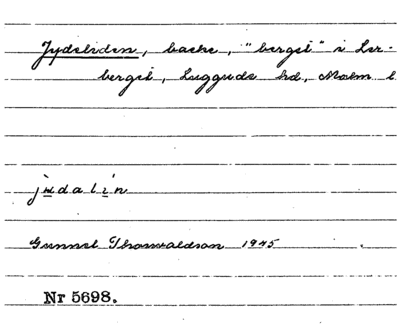 Jydeliden, backe, "berget" i Ler-
berget, Luggude hd, Malm l
jùdalín
Gunnel Thorwaldson 1945
Nr 5698.